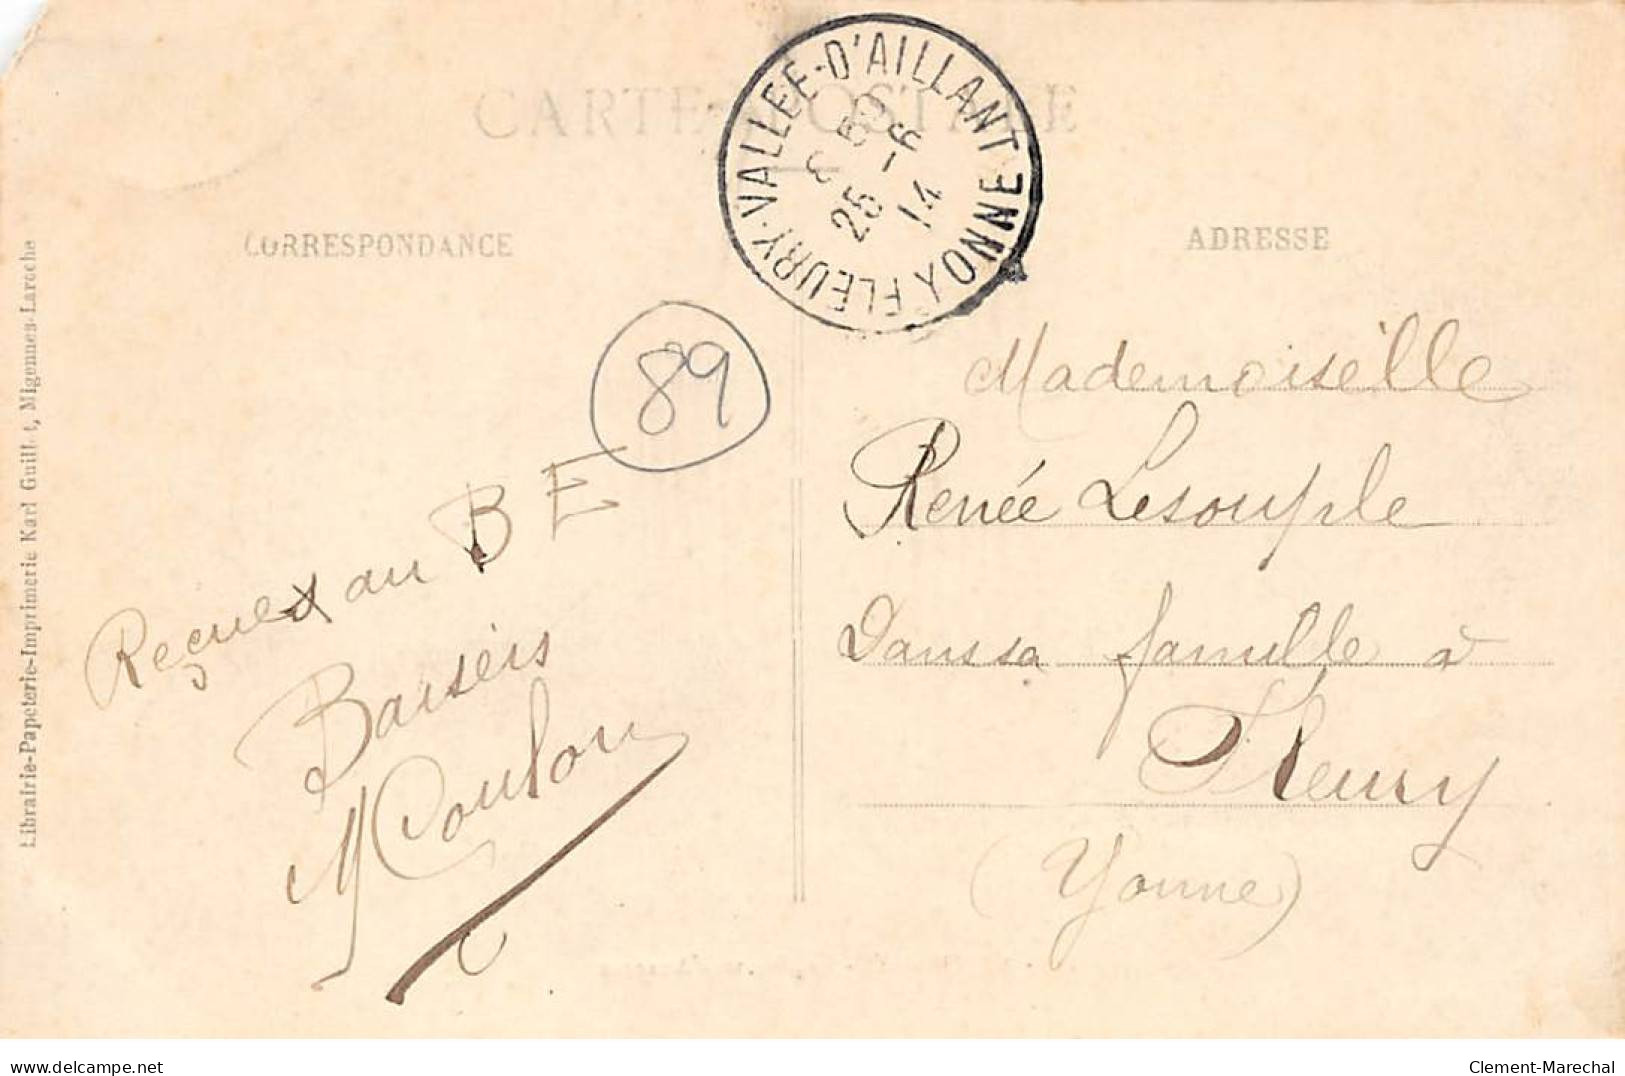 CARTE POSTALE
FLEURY-VALLEE-D'AILLANT YONNE
25 -6
14
CORRESPONDANCE
ADRESSE
89
Reçues au B E
Baisers
M Coulon
Mademoiselle
Renée Lesouple
Dans sa famille à
Fleury
(Yonne)
Librairie-Papeterie-Imprimerie Karl Guillot, Migennes-Laroche
delcampe.net
Clement-Marechal